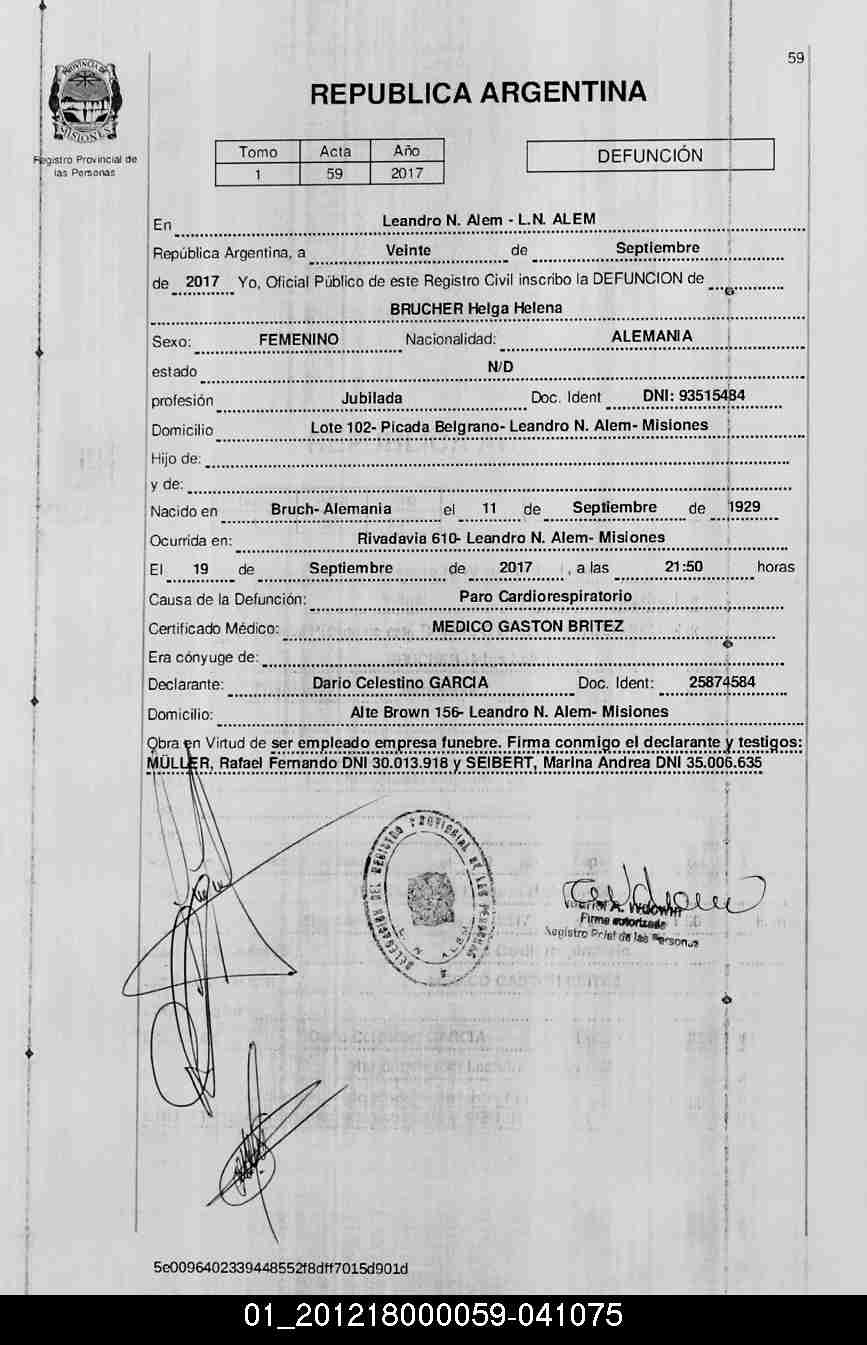 59
PROVINCIA DE
MISIONES
Registro Provincial de
las Personas
REPUBLICA ARGENTINA
Tomo Acta Año
1 59 2017
DEFUNCIÓN
En Leandro N. Alem - L.N. ALEM
República Argentina, a Veinte de Septiembre
de 2017 Yo, Oficial Público de este Registro Civil inscribo la DEFUNCION de
BRUCHER Helga Helena
Sexo: FEMENINO Nacionalidad: ALEMANIA
estado N/D
profesión Jubilada Doc. Ident DNI: 93515484
Domicilio Lote 102- Picada Belgrano- Leandro N. Alem- Misiones
Hijo de:
y de:
Nacido en Bruch- Alemania el 11 de Septiembre de 1929
Ocurrida en: Rivadavia 610- Leandro N. Alem- Misiones
El 19 de Septiembre de 2017, a las 21:50 horas
Causa de la Defunción: Paro Cardiorespiratorio
Certificado Médico: MEDICO GASTON BRITEZ
Era cónyuge de:
Declarante: Dario Celestino GARCIA Doc. Ident: 25874584
Domicilio: Alte Brown 156- Leandro N. Alem- Misiones
Obra en Virtud de ser empleado empresa funebre. Firma conmigo el declarante y testigos:
MÜLLER, Rafael Fernando DNI 30.013.918 y SEIBERT, Marina Andrea DNI 35.006.635
DELEGACION DEL REGISTRO PROVINCIAL DE LAS PERSONAS
L. N. ALEM
Firma autorizada
Registro Prial de las Personas
5e0096402339448552f8dff7015d901d
01_201218000059-041075